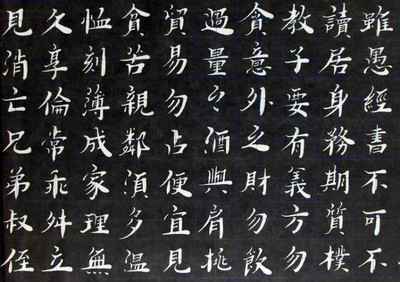 雖愚經書不可不
讀居身務期質樸
教子要有義方勿
貪意外之財勿飲
過量之酒與肩挑
貿易勿占便宜見
貧苦親鄰須多温
恤刻薄成家理無
久享倫常乖舛立
見消亡兄弟叔侄